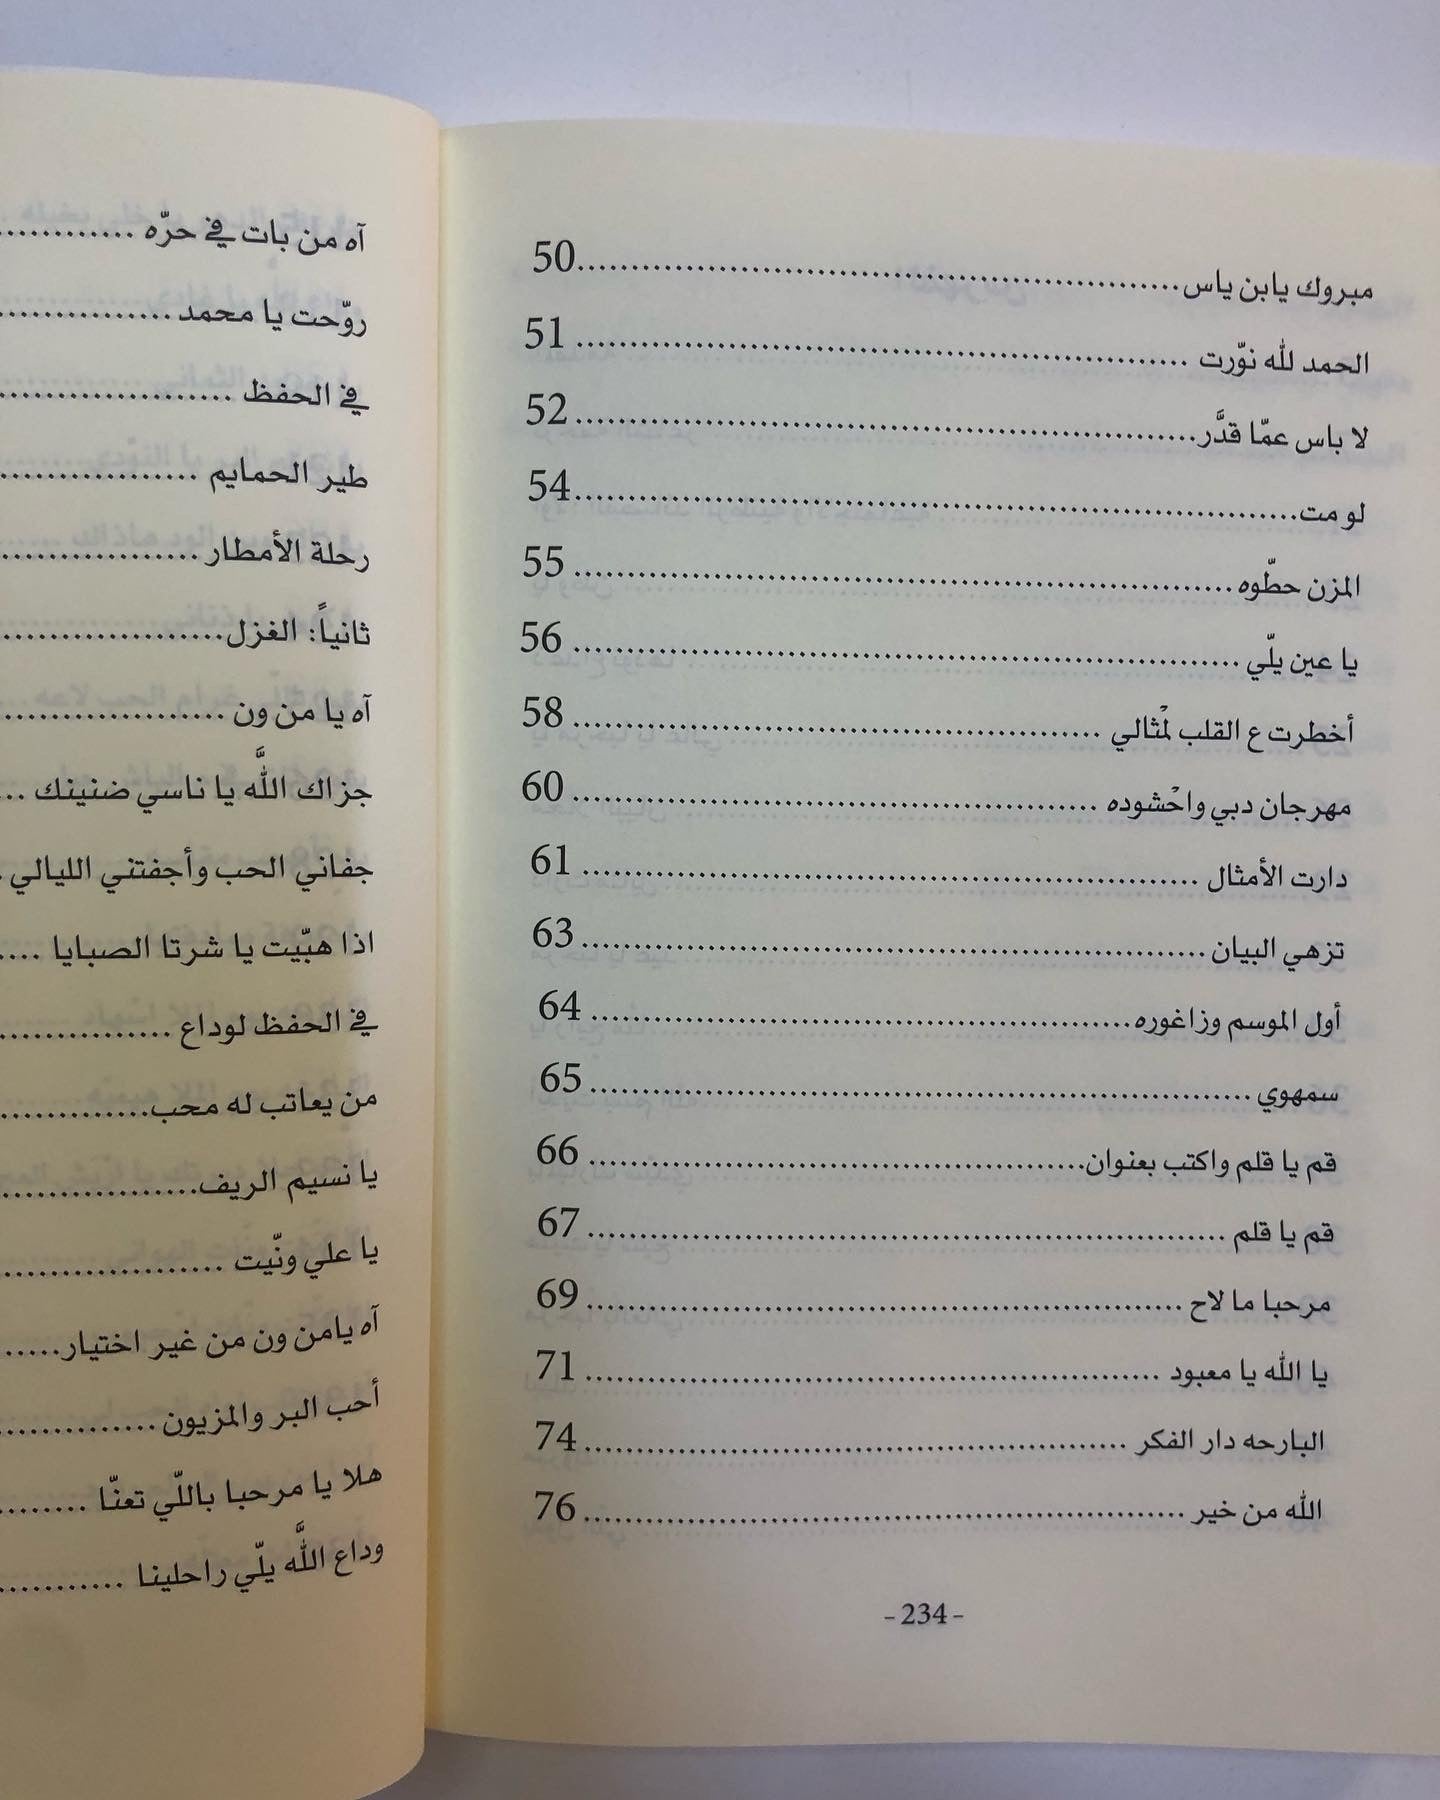 مبروك يابن ياس............................................50
الحمد لله نوّرت ............................................51
لا باس عمّا قدَّر............................................52
لو مت............................................54
المزن حطّوه ............................................55
يا عين يلّي ............................................56
أخطرت ع القلب لمْثالي ............................................58
مهرجان دبي واحْشوده ............................................60
دارت الأمثال ............................................61
تزهي البيان............................................63
أول الموسم وزاغوره............................................64
سمهوي ............................................65
قم يا قلم واكتب بعنوان............................................66
قم يا قلم ............................................67
مرحبا ما لاح ............................................69
يا الله يا معبود ............................................71
البارحه دار الفكر ............................................74
الله من خير ............................................76
-234-
آه من بات في حرّه ............
روّحت يا محمد ................
في الحفظ .....................
طير الحمايم ..................
رحلة الأمطار..................
ثانياً: الغزل....................
آه يا من ون ....................
جزاك اللَّه يا ناسي ضنينك ..
جفاني الحب وأجفتني الليالي .
اذا هبّيت يا شرتا الصبايا ....
في الحفظ لوداع ...............
من يعاتب له محب.............
يا نسيم الريف..................
يا علي ونّيت ...................
آه يامن ون من غير اختيار.....
أحب البر والمزيون..............
هلا يا مرحبا باللّي تعنّا ........
وداع اللَّه يلّي راحلينا ...........